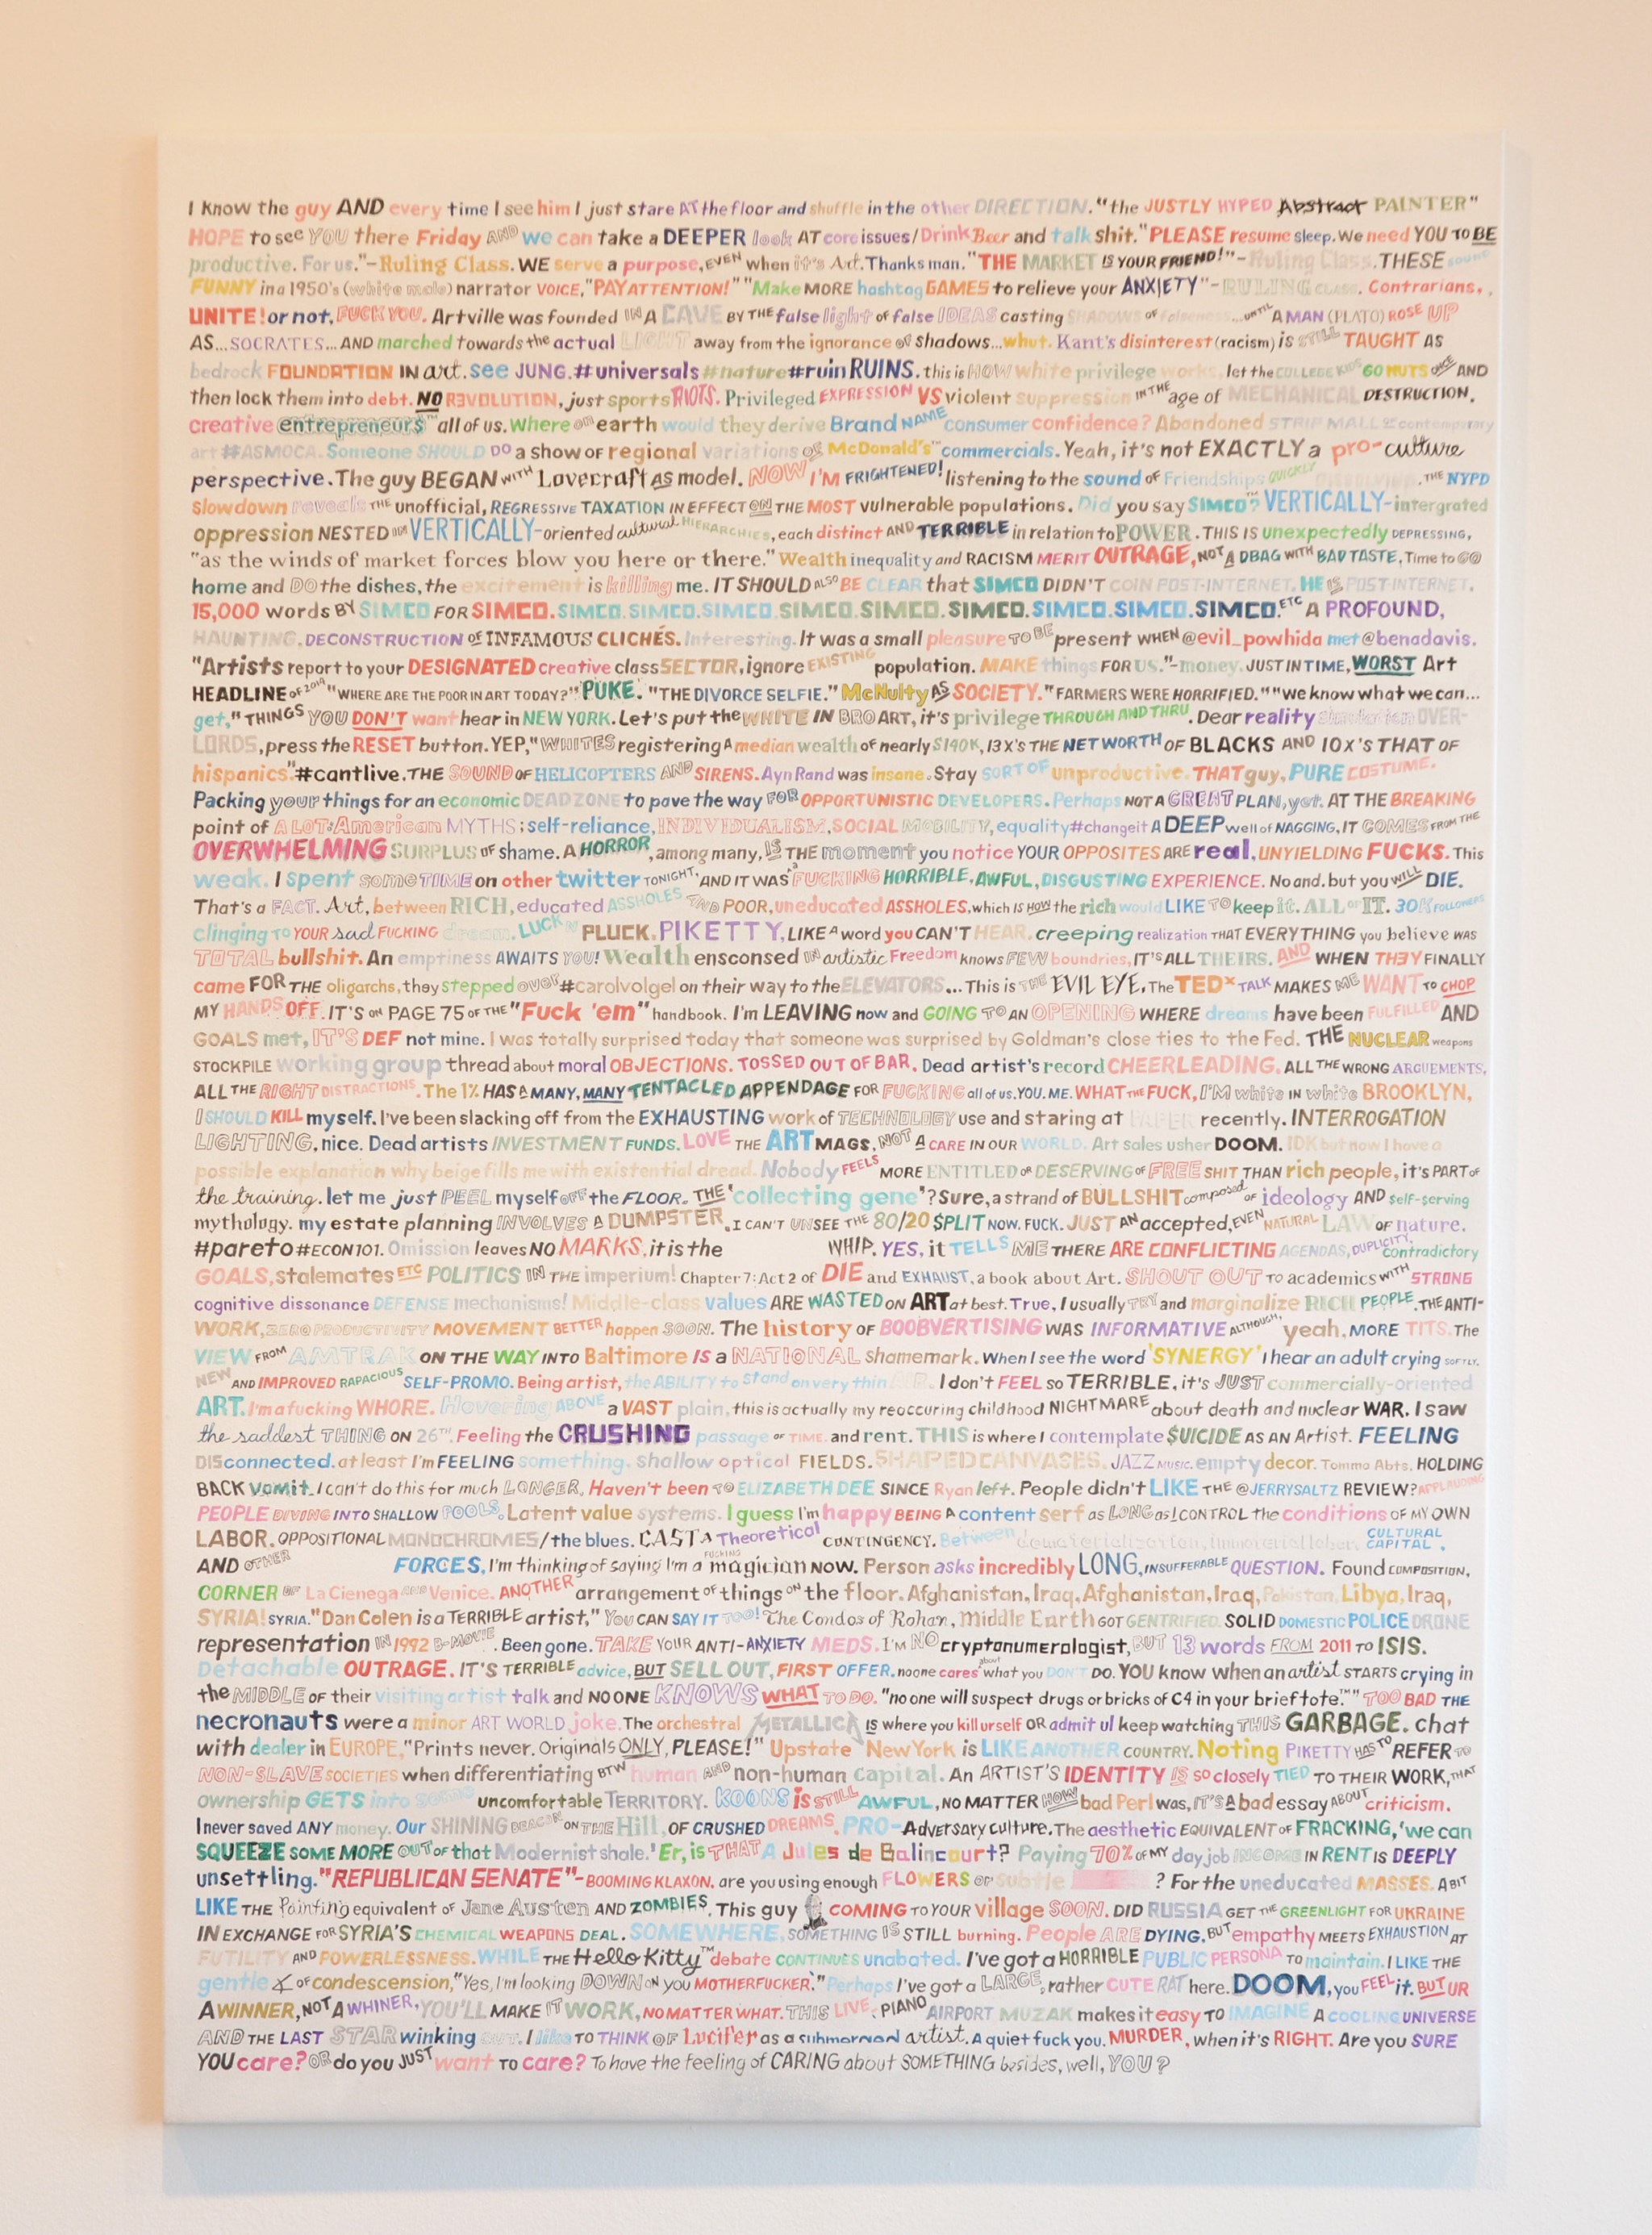 I Know the guy AND every time I see him I just stare AT the floor and shuffle in the other DIRECTION. "the JUSTLY HYPED Abstract PAINTER"
HOPE to see YOU there Friday AND we can take a DEEPER look AT core issues/Drink Beer and talk shit." PLEASE resume sleep. We need YOU TO BE
productive. For us."-Ruling Class. WE serve a purpose, EVEN when it's Art. Thanks man. "THE MARKET IS YOUR FRIEND!"-Ruling Class. THESE sound
FUNNY in a 1950's (white male) narrator VOICE, "PAY ATTENTION!" "Make MORE hashtag GAMES to relieve your ANXIETY"-RULING CLASS. Contrarians,
UNITE! or not, FUCK YOU. Artville was founded IN A CAVE BY THE false light of false IDEAS casting SHADOWS OF falseness...UNTIL A MAN (PLATO) ROSE UP
AS...SOCRATES...AND marched towards the actual LIGHT away from the ignorance OF shadows...whut. Kant's disinterest (racism) is STILL TAUGHT AS
bedrock FOUNDATION IN art. see JUNG. #universals #nature #ruin RUINS. this is HOW white privilege works, let the COLLEGE KIDS GO NUTS ONCE AND
then lock them into debt. NO REVOLUTION, just sports RIOTS. Privileged EXPRESSION VS violent suppression IN THE age of MECHANICAL DESTRUCTION.
creative entrepreneur$™ all of us. Where ON earth would they derive Brand NAME consumer confidence? Abandoned STRIP MALL OF contemporary
art #ASMOCA. Someone SHOULD DO a show of regional variations OF McDonald's™ commercials. Yeah, it's not EXACTLY a pro-culture
perspective. The guy BEGAN WITH Lovecraft AS model. NOW I'M FRIGHTENED! listening to the sound of Friendships QUICKLY DISSOLVING. THE NYPD
slowdown reveals THE unofficial, REGRESSIVE TAXATION IN EFFECT ON THE MOST vulnerable populations. Did you say SIMCO™? VERTICALLY-intergrated
oppression NESTED IN VERTICALLY-oriented cultural HIERARCHIES, each distinct AND TERRIBLE in relation to POWER. THIS IS unexpectedly DEPRESSING,
"as the winds of market forces blow you here or there." Wealth inequality and RACISM MERIT OUTRAGE, NOT A DBAG WITH BAD TASTE, Time to GO
home and DO the dishes, the excitement is killing me. IT SHOULD ALSO BE CLEAR that SIMCO DIDN'T COIN POST-INTERNET. HE IS POST-INTERNET.
15,000 words BY SIMCO FOR SIMCO. SIMCO. SIMCO. SIMCO. SIMCO. SIMCO. SIMCO. SIMCO. SIMCO. SIMCO. ETC A PROFOUND,
HAUNTING. DECONSTRUCTION OF INFAMOUS CLICHÉS. Interesting. It was a small pleasure TO BE present WHEN @evil_powhida met @benadavis.
"Artists report to your DESIGNATED creative class SECTOR, ignore EXISTING population. MAKE things FOR US."-money. JUST IN TIME, WORST Art
HEADLINE OF 2014 "WHERE ARE THE POOR IN ART TODAY?" PUKE. "THE DIVORCE SELFIE." McNulty AS SOCIETY. "FARMERS WERE HORRIFIED." "we know what we can...
get," THINGS YOU DON'T want hear in NEW YORK. Let's put the WHITE IN BRO ART, it's privilege THROUGH AND THRU. Dear reality simulation OVER-
LORDS, press the RESET button. YEP, "WHITES registering A median wealth of nearly $140K, 13X'S THE NET WORTH OF BLACKS AND 10X'S THAT OF
hispanics." #cantlive. THE SOUND OF HELICOPTERS AND SIRENS. Ayn Rand was insane. Stay SORT OF unproductive. THAT guy, PURE COSTUME.
Packing your things for an economic DEAD ZONE to pave the way FOR OPPORTUNISTIC DEVELOPERS. Perhaps NOT A GREAT PLAN, yet. AT THE BREAKING
point of A LOT of American MYTHS; self-reliance, INDIVIDUALISM, SOCIAL MOBILITY, equality #changeit A DEEP well of NAGGING, IT COMES FROM THE
OVERWHELMING SURPLUS OF shame. A HORROR, among many, IS THE moment you notice YOUR OPPOSITES ARE real, UNYIELDING FUCKS. This
weak. I spent some TIME on other twitter TONIGHT, AND IT WAS A FUCKING HORRIBLE, AWFUL, DISGUSTING EXPERIENCE. No and. but you WILL DIE.
That's a FACT. Art, between RICH, educated ASSHOLES AND POOR, uneducated ASSHOLES, which IS HOW the rich would LIKE TO keep it. ALL OF IT. 30K FOLLOWERS
clinging TO YOUR sad FUCKING dream. LUCK N PLUCK. PIKETTY, LIKE A word you CAN'T HEAR. creeping realization THAT EVERYTHING you believe WAS
TOTAL bullshit. An emptiness AWAITS YOU! Wealth ensconsed IN artistic Freedom knows FEW boundries, IT'S ALL THEIRS. AND WHEN THEY FINALLY
came FOR THE oligarchs, they stepped over #carolvolgel on their way to the ELEVATORS... This is THE EVIL EYE. The TEDx TALK MAKES ME WANT TO CHOP
MY HANDS OFF. IT'S ON PAGE 75 OF THE "Fuck 'em" handbook. I'm LEAVING now and GOING TO AN OPENING WHERE dreams have been FULFILLED AND
GOALS met, IT'S DEF not mine. I was totally surprised today that someone was surprised by Goldman's close ties to the Fed. THE NUCLEAR weapons
STOCKPILE working group thread about moral OBJECTIONS. TOSSED OUT OF BAR. Dead artist's record CHEERLEADING. ALL THE WRONG ARGUEMENTS,
ALL THE RIGHT DISTRACTIONS. The 1% HAS A MANY, MANY TENTACLED APPENDAGE FOR FUCKING all of us. YOU. ME. WHAT THE FUCK, I'M white IN white BROOKLYN,
I SHOULD KILL myself. I've been slacking off from the EXHAUSTING work of TECHNOLOGY use and staring at PAPER recently. INTERROGATION
LIGHTING, nice. Dead artists INVESTMENT FUNDS. LOVE THE ART MAGS, NOT A CARE IN OUR WORLD. Art sales usher DOOM. IDK but now I have a
possible explanation why beige fills me with existential dread. Nobody FEELS MORE ENTITLED OR DESERVING OF FREE SHIT THAN rich people, it's PART OF
the training. let me just PEEL myself OFF the FLOOR. THE 'collecting gene'? Sure, a strand of BULLSHIT composed OF ideology AND $elf-$erving
mythology. my estate planning INVOLVES A DUMPSTER. I CAN'T UNSEE THE 80/20 $PLIT NOW. FUCK. JUST AN accepted, EVEN NATURAL LAW OF nature.
#pareto #ECON101. Omission leaves NO MARKS, it is the WHIP. YES, it TELLS ME THERE ARE CONFLICTING AGENDAS, DUPLICITY, contradictory
GOALS, stalemates ETC POLITICS IN THE imperium! Chapter 7: Act 2 of DIE and EXHAUST, a book about Art. SHOUT OUT TO academics WITH STRONG
cognitive dissonance DEFENSE mechanisms! Middle-class values ARE WASTED ON ART at best. True, I usually TRY and marginalize RICH PEOPLE. THE ANTI-
WORK, ZERO PRODUCTIVITY MOVEMENT BETTER happen SOON. The history OF BOOBVERTISING WAS INFORMATIVE ALTHOUGH, yeah, MORE TITS. The
VIEW FROM AMTRAK ON THE WAY INTO Baltimore IS a NATIONAL shamemark. When I see the word 'SYNERGY' I hear an adult crying SOFTLY.
NEW AND IMPROVED RAPACIOUS SELF-PROMO. Being artist, the ABILITY to stand on very thin AIR. I don't FEEL so TERRIBLE, it's JUST commercially-oriented
ART. I'm a fucking WHORE. Hovering ABOVE a VAST plain, this is actually my reoccuring childhood NIGHTMARE about death and nuclear WAR. I saw
the saddest THING ON 26TH. Feeling the CRUSHING passage OF TIME. and rent. THIS is where I contemplate $UICIDE AS AN Artist. FEELING
DISconnected. at least I'm FEELING something. shallow optical FIELDS. SHAPED CANVASES. JAZZ MUSIC. empty decor. Tomma Abts. HOLDING
BACK vomit. I can't do this for much LONGER. Haven't been TO ELIZABETH DEE SINCE Ryan left. People didn't LIKE THE @JERRYSALTZ REVIEW? APPLAUDING
PEOPLE DIVING INTO SHALLOW POOLS. Latent value systems. I guess I'm happy BEING A content serf as LONG as I CONTROL the conditions OF MY OWN
LABOR. OPPOSITIONAL MONOCHROMES/the blues. CAST A Theoretical CONTINGENCY. Between dematerialization, immaterial labor, CULTURAL CAPITAL,
AND OTHER FORCES, I'm thinking of saying I'm a FUCKING magician NOW. Person asks incredibly LONG, INSUFFERABLE QUESTION. Found COMPOSITION,
CORNER OF La Cienega AND Venice. ANOTHER arrangement of things on the floor. Afghanistan, Iraq, Afghanistan, Iraq, Pakistan, Libya, Iraq,
SYRIA! SYRIA. "Dan Colen is a TERRIBLE artist," YOU CAN SAY IT TOO! The Condos of Rohan, Middle Earth GOT GENTRIFIED. SOLID DOMESTIC POLICE DRONE
representation IN 1992 B-MOVIE. Been gone. TAKE YOUR ANTI-ANXIETY MEDS. I'M NO cryptonumerologist, BUT 13 words FROM 2011 TO ISIS.
Detachable OUTRAGE. IT'S TERRIBLE advice, BUT SELL OUT, FIRST OFFER. no one cares about what you DON'T DO. YOU know when an artist STARTS crying in
the MIDDLE OF their visiting artist talk and NO ONE KNOWS WHAT TO DO. "no one will suspect drugs or bricks of C4 in your brieftote.™" TOO BAD THE
necronauts were a minor ART WORLD joke. The orchestral METALLICA IS where you kill urself OR admit ul keep watching THIS GARBAGE. chat
with dealer in EUROPE, "Prints never. Originals ONLY, PLEASE!" Upstate New York is LIKE ANOTHER COUNTRY. Noting PIKETTY HAS TO REFER TO
NON-SLAVE SOCIETIES when differentiating BTW human AND non-human capital. An ARTIST'S IDENTITY IS so closely TIED TO THEIR WORK, THAT
ownership GETS into uncomfortable TERRITORY. KOONS is STILL AWFUL, NO MATTER HOW bad Perl was, IT'S A bad essay ABOUT criticism.
I never saved ANY money. Our SHINING BEACON ON THE Hill, OF CRUSHED DREAMS. PRO-Adversary culture. The aesthetic EQUIVALENT OF FRACKING, 'we can
SQUEEZE SOME MORE OUT of that Modernist shale.' Er, is THAT A Jules de Balincourt? Paying 70% OF MY day job INCOME IN RENT IS DEEPLY
unsettling. "REPUBLICAN SENATE"-BOOMING KLAXON. are you using enough FLOWERS OR subtle ? For the uneducated MASSES. A BIT
LIKE THE Painting equivalent OF Jane Austen AND ZOMBIES. This guy COMING TO YOUR village SOON. DID RUSSIA GET THE GREENLIGHT FOR UKRAINE
IN EXCHANGE FOR SYRIA'S CHEMICAL WEAPONS DEAL. SOMEWHERE, SOMETHING IS STILL burning. People ARE DYING, BUT empathy MEETS EXHAUSTION AT
FUTILITY AND POWERLESSNESS. WHILE THE Hello Kitty™ debate CONTINUES unabated. I've got a HORRIBLE PUBLIC PERSONA TO maintain. I LIKE THE
gentle OF condescension, "Yes, I'm looking DOWN ON YOU MOTHERFUCKER." Perhaps I've got a LARGE, rather CUTE RAT here. DOOM, you FEEL it. BUT UR
A WINNER, NOT A WHINER, YOU'LL MAKE IT WORK, NO MATTER WHAT. THIS LIVE PIANO AIRPORT MUZAK makes it easy TO IMAGINE A COOLING UNIVERSE
AND THE LAST STAR winking OUT. I like TO THINK OF Lucifer as a submerged artist. A quiet fuck you. MURDER, when it's RIGHT. Are you SURE
YOU care? OR do you JUST want TO care? To have the feeling of CARING about SOMETHING besides, well, YOU?